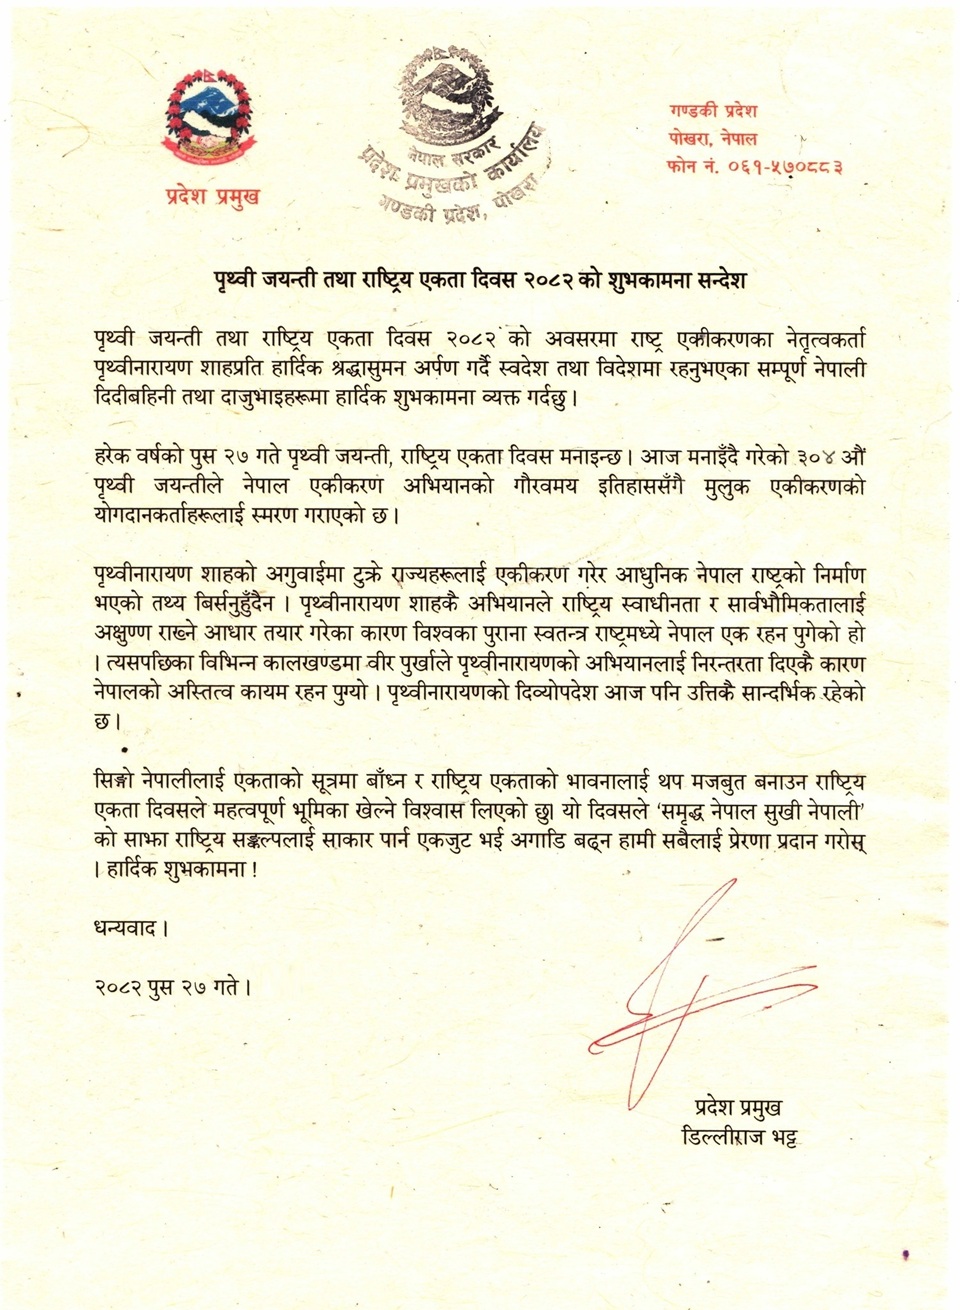 प्रदेश प्रमुख
नेपाल सरकार
प्रदेश प्रमुखको कार्यालय
गण्डकी प्रदेश, पोखरा
गण्डकी प्रदेश
पोखरा, नेपाल
फोन नं. ०६१-५७०८८३
पृथ्वी जयन्ती तथा राष्ट्रिय एकता दिवस २०८२ को शुभकामना सन्देश
पृथ्वी जयन्ती तथा राष्ट्रिय एकता दिवस २०८२ को अवसरमा राष्ट्र एकीकरणका नेतृत्वकर्ता
पृथ्वीनारायण शाहप्रति हार्दिक श्रद्धासुमन अर्पण गर्दै स्वदेश तथा विदेशमा रहनुभएका सम्पूर्ण नेपाली
दिदीबहिनी तथा दाजुभाइहरूमा हार्दिक शुभकामना व्यक्त गर्दछु ।
हरेक वर्षको पुस २७ गते पृथ्वी जयन्ती, राष्ट्रिय एकता दिवस मनाइन्छ । आज मनाइँदै गरेको ३०४ औं
पृथ्वी जयन्तीले नेपाल एकीकरण अभियानको गौरवमय इतिहाससँगै मुलुक एकीकरणको
योगदानकर्ताहरूलाई स्मरण गराएको छ ।
पृथ्वीनारायण शाहको अगुवाईमा टुक्रे राज्यहरूलाई एकीकरण गरेर आधुनिक नेपाल राष्ट्रको निर्माण
भएको तथ्य बिर्सनुहुँदैन । पृथ्वीनारायण शाहकै अभियानले राष्ट्रिय स्वाधीनता र सार्वभौमिकतालाई
अक्षुण्ण राख्ने आधार तयार गरेका कारण विश्वका पुराना स्वतन्त्र राष्ट्रमध्ये नेपाल एक रहन पुगेको हो
। त्यसपछिका विभिन्न कालखण्डमा वीर पुर्खाले पृथ्वीनारायणको अभियानलाई निरन्तरता दिएकै कारण
नेपालको अस्तित्व कायम रहन पुग्यो । पृथ्वीनारायणको दिव्योपदेश आज पनि उत्तिकै सान्दर्भिक रहेको
छ ।
सिङ्गो नेपालीलाई एकताको सूत्रमा बाँध्न र राष्ट्रिय एकताको भावनालाई थप मजबुत बनाउन राष्ट्रिय
एकता दिवसले महत्वपूर्ण भूमिका खेल्ने विश्वास लिएको छु। यो दिवसले ‘समृद्ध नेपाल सुखी नेपाली’
को साझा राष्ट्रिय सङ्कल्पलाई साकार पार्न एकजुट भई अगाडि बढ्न हामी सबैलाई प्रेरणा प्रदान गरोस्
। हार्दिक शुभकामना !
धन्यवाद ।
२०८२ पुस २७ गते ।
प्रदेश प्रमुख
डिल्लीराज भट्ट